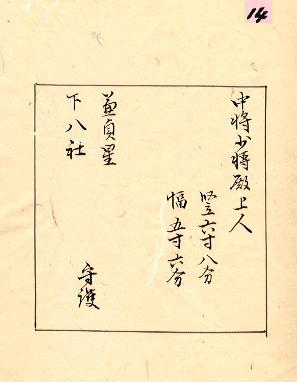 14
中将少将殿上人
竪六寸八分
幅五寸六分
簾貞星
下八社
守護